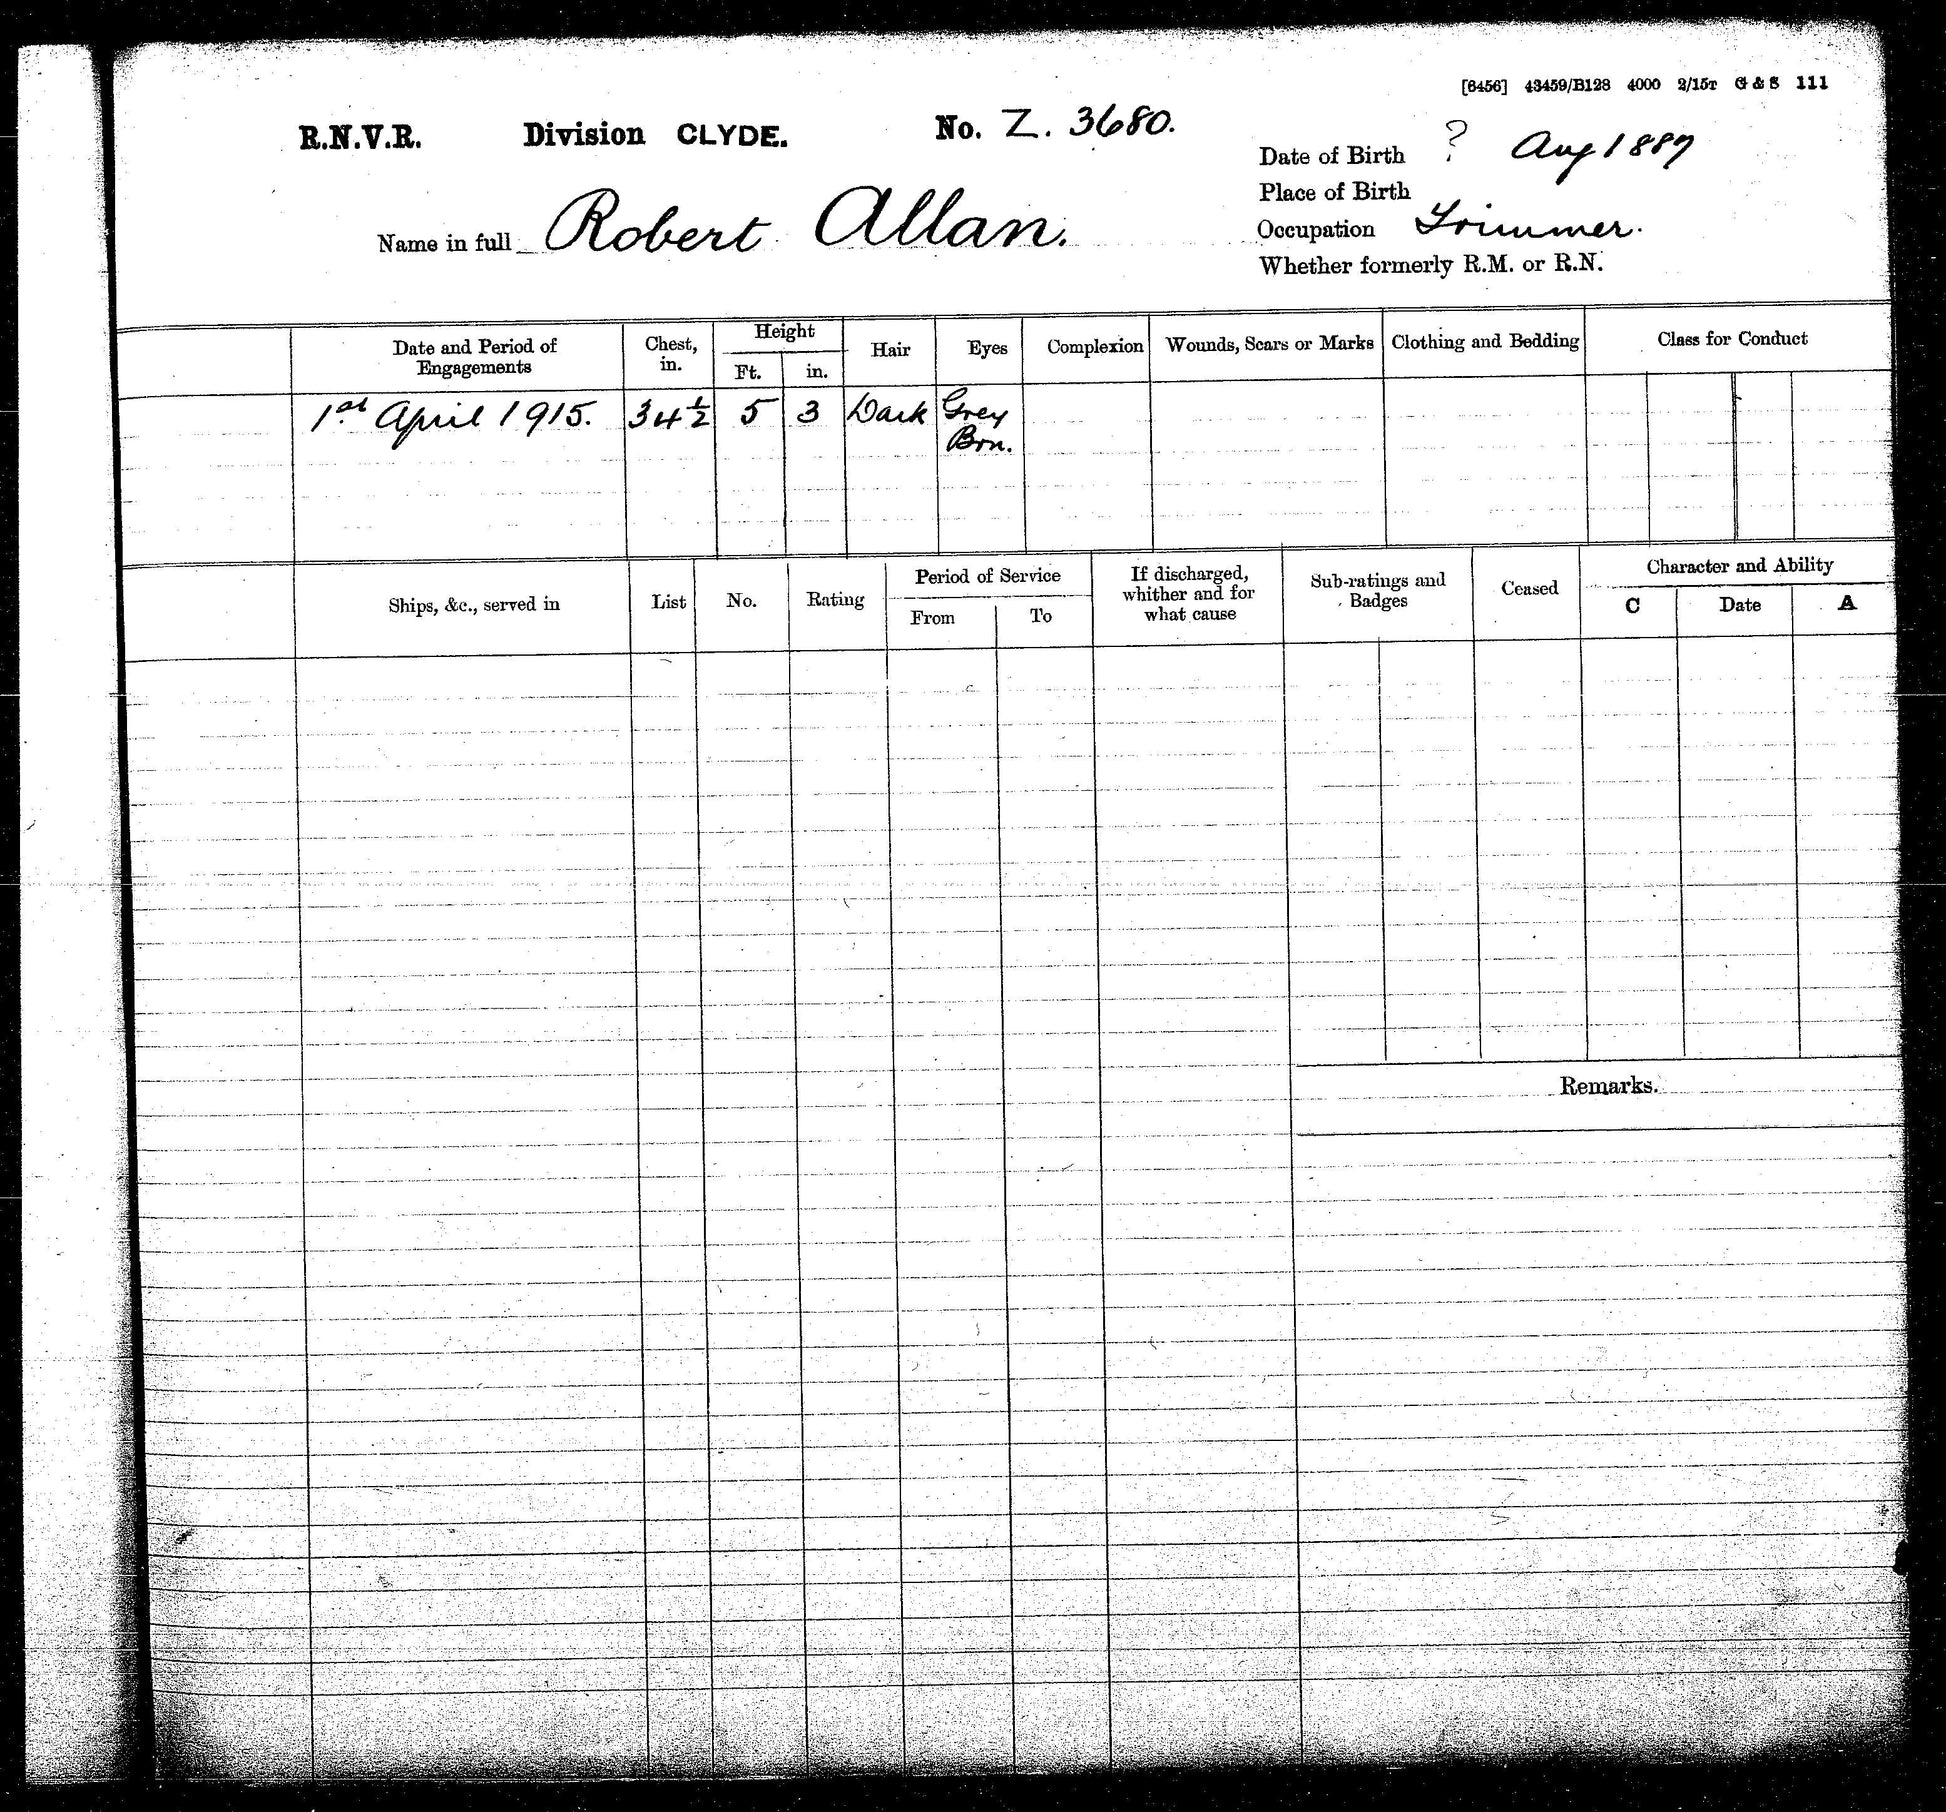 [6456] 43459/B128 4000 2/15T G & S 111
R.N.V.R. Division CLYDE. No. Z. 3680.
Date of Birth ? Aug 1887
Place of Birth
Name in full Robert Allan.
Occupation Trimmer.
Whether formerly R.M. or R.N.
Date and Period of Engagements Chest, in. Height Ft. in. Hair Eyes Complexion Wounds, Scars or Marks Clothing and Bedding Class for Conduct
1st April 1915. 34½ 5 3 Dark Grey
Brn.
Ships, &c., served in List No. Rating Period of Service From To If discharged, whither and for what cause Sub-ratings and Badges Ceased Character and Ability C Date A
Remarks.